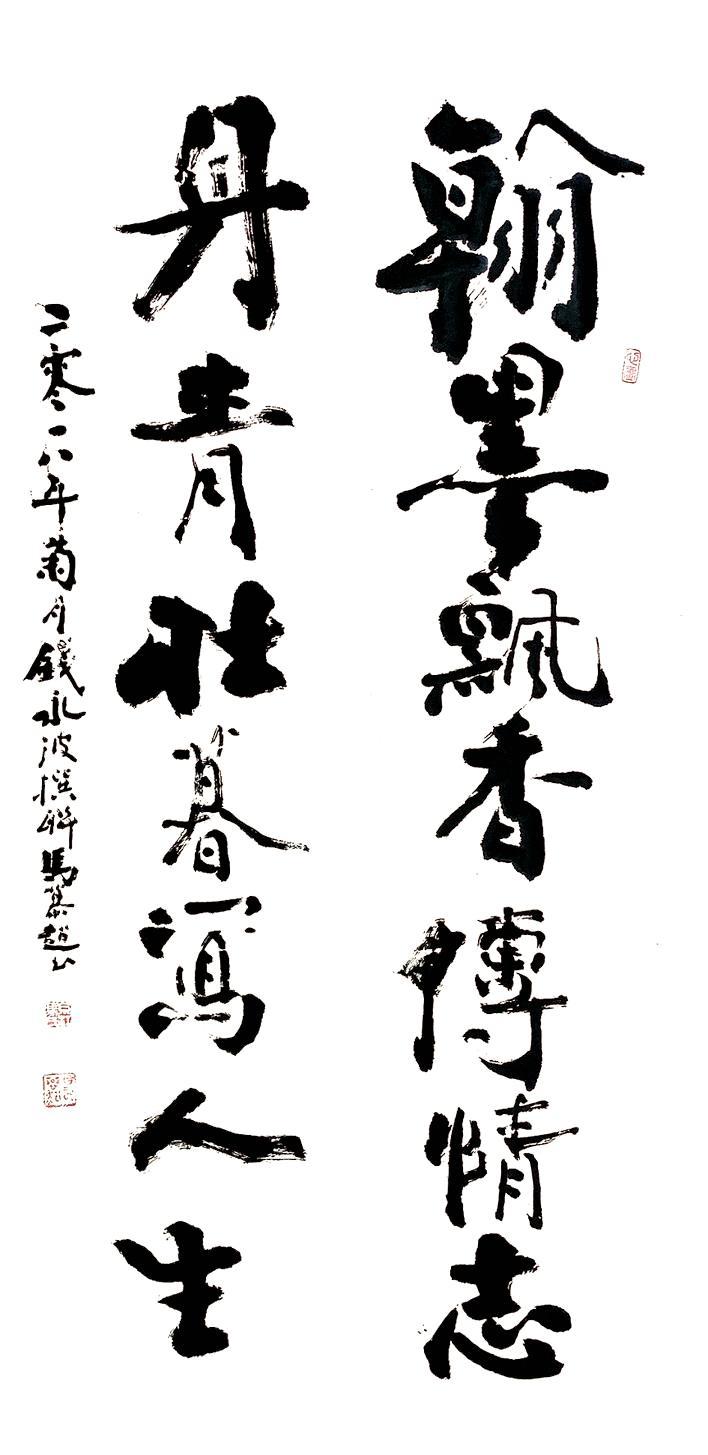 翰墨飄香傳情志
丹青壯暮寫人生
二零一八年菊月錢永波撰聯馬慕趙書